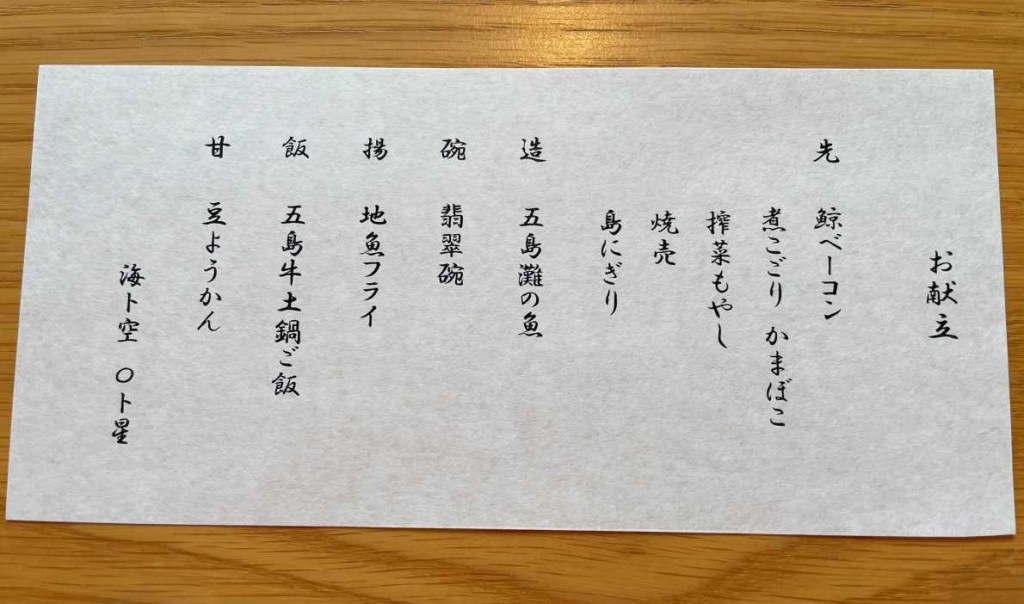 お献立
先 鯨ベーコン
煮こごり かまぼこ
搾菜もやし
焼売
島にぎり
造 五島灘の魚
碗 翡翠碗
揚 地魚フライ
飯 五島牛土鍋ご飯
甘 豆ようかん
海ト空 〇ト星